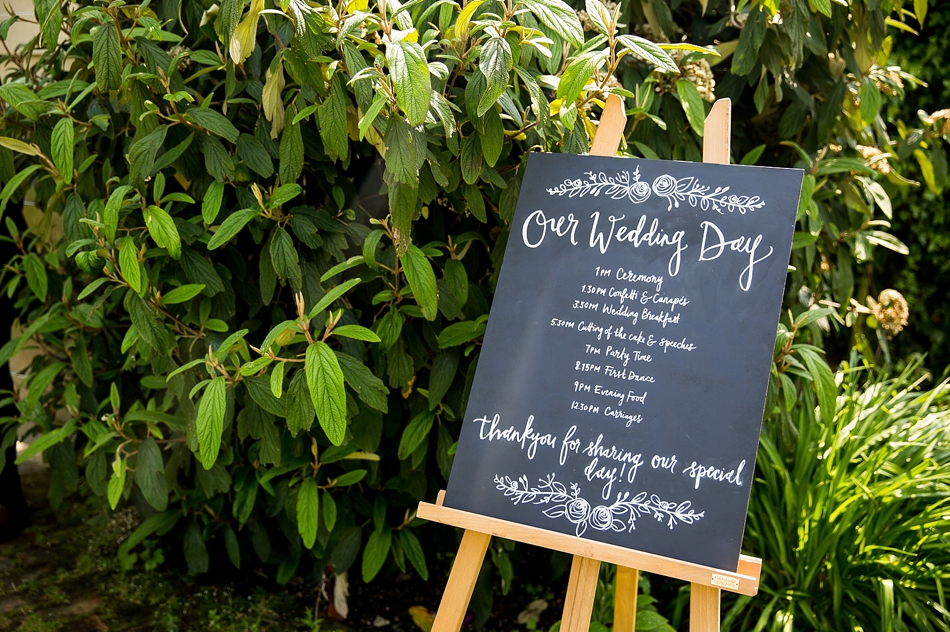 Our Wedding Day
1PM Ceremony
1.30PM Confetti & Canapés
3.30PM Wedding Breakfast
5.30PM Cutting of the cake & speeches
7PM Party Time
8.15PM First Dance
9PM Evening Food
12.30PM Carriages
thankyou for sharing our special
day!